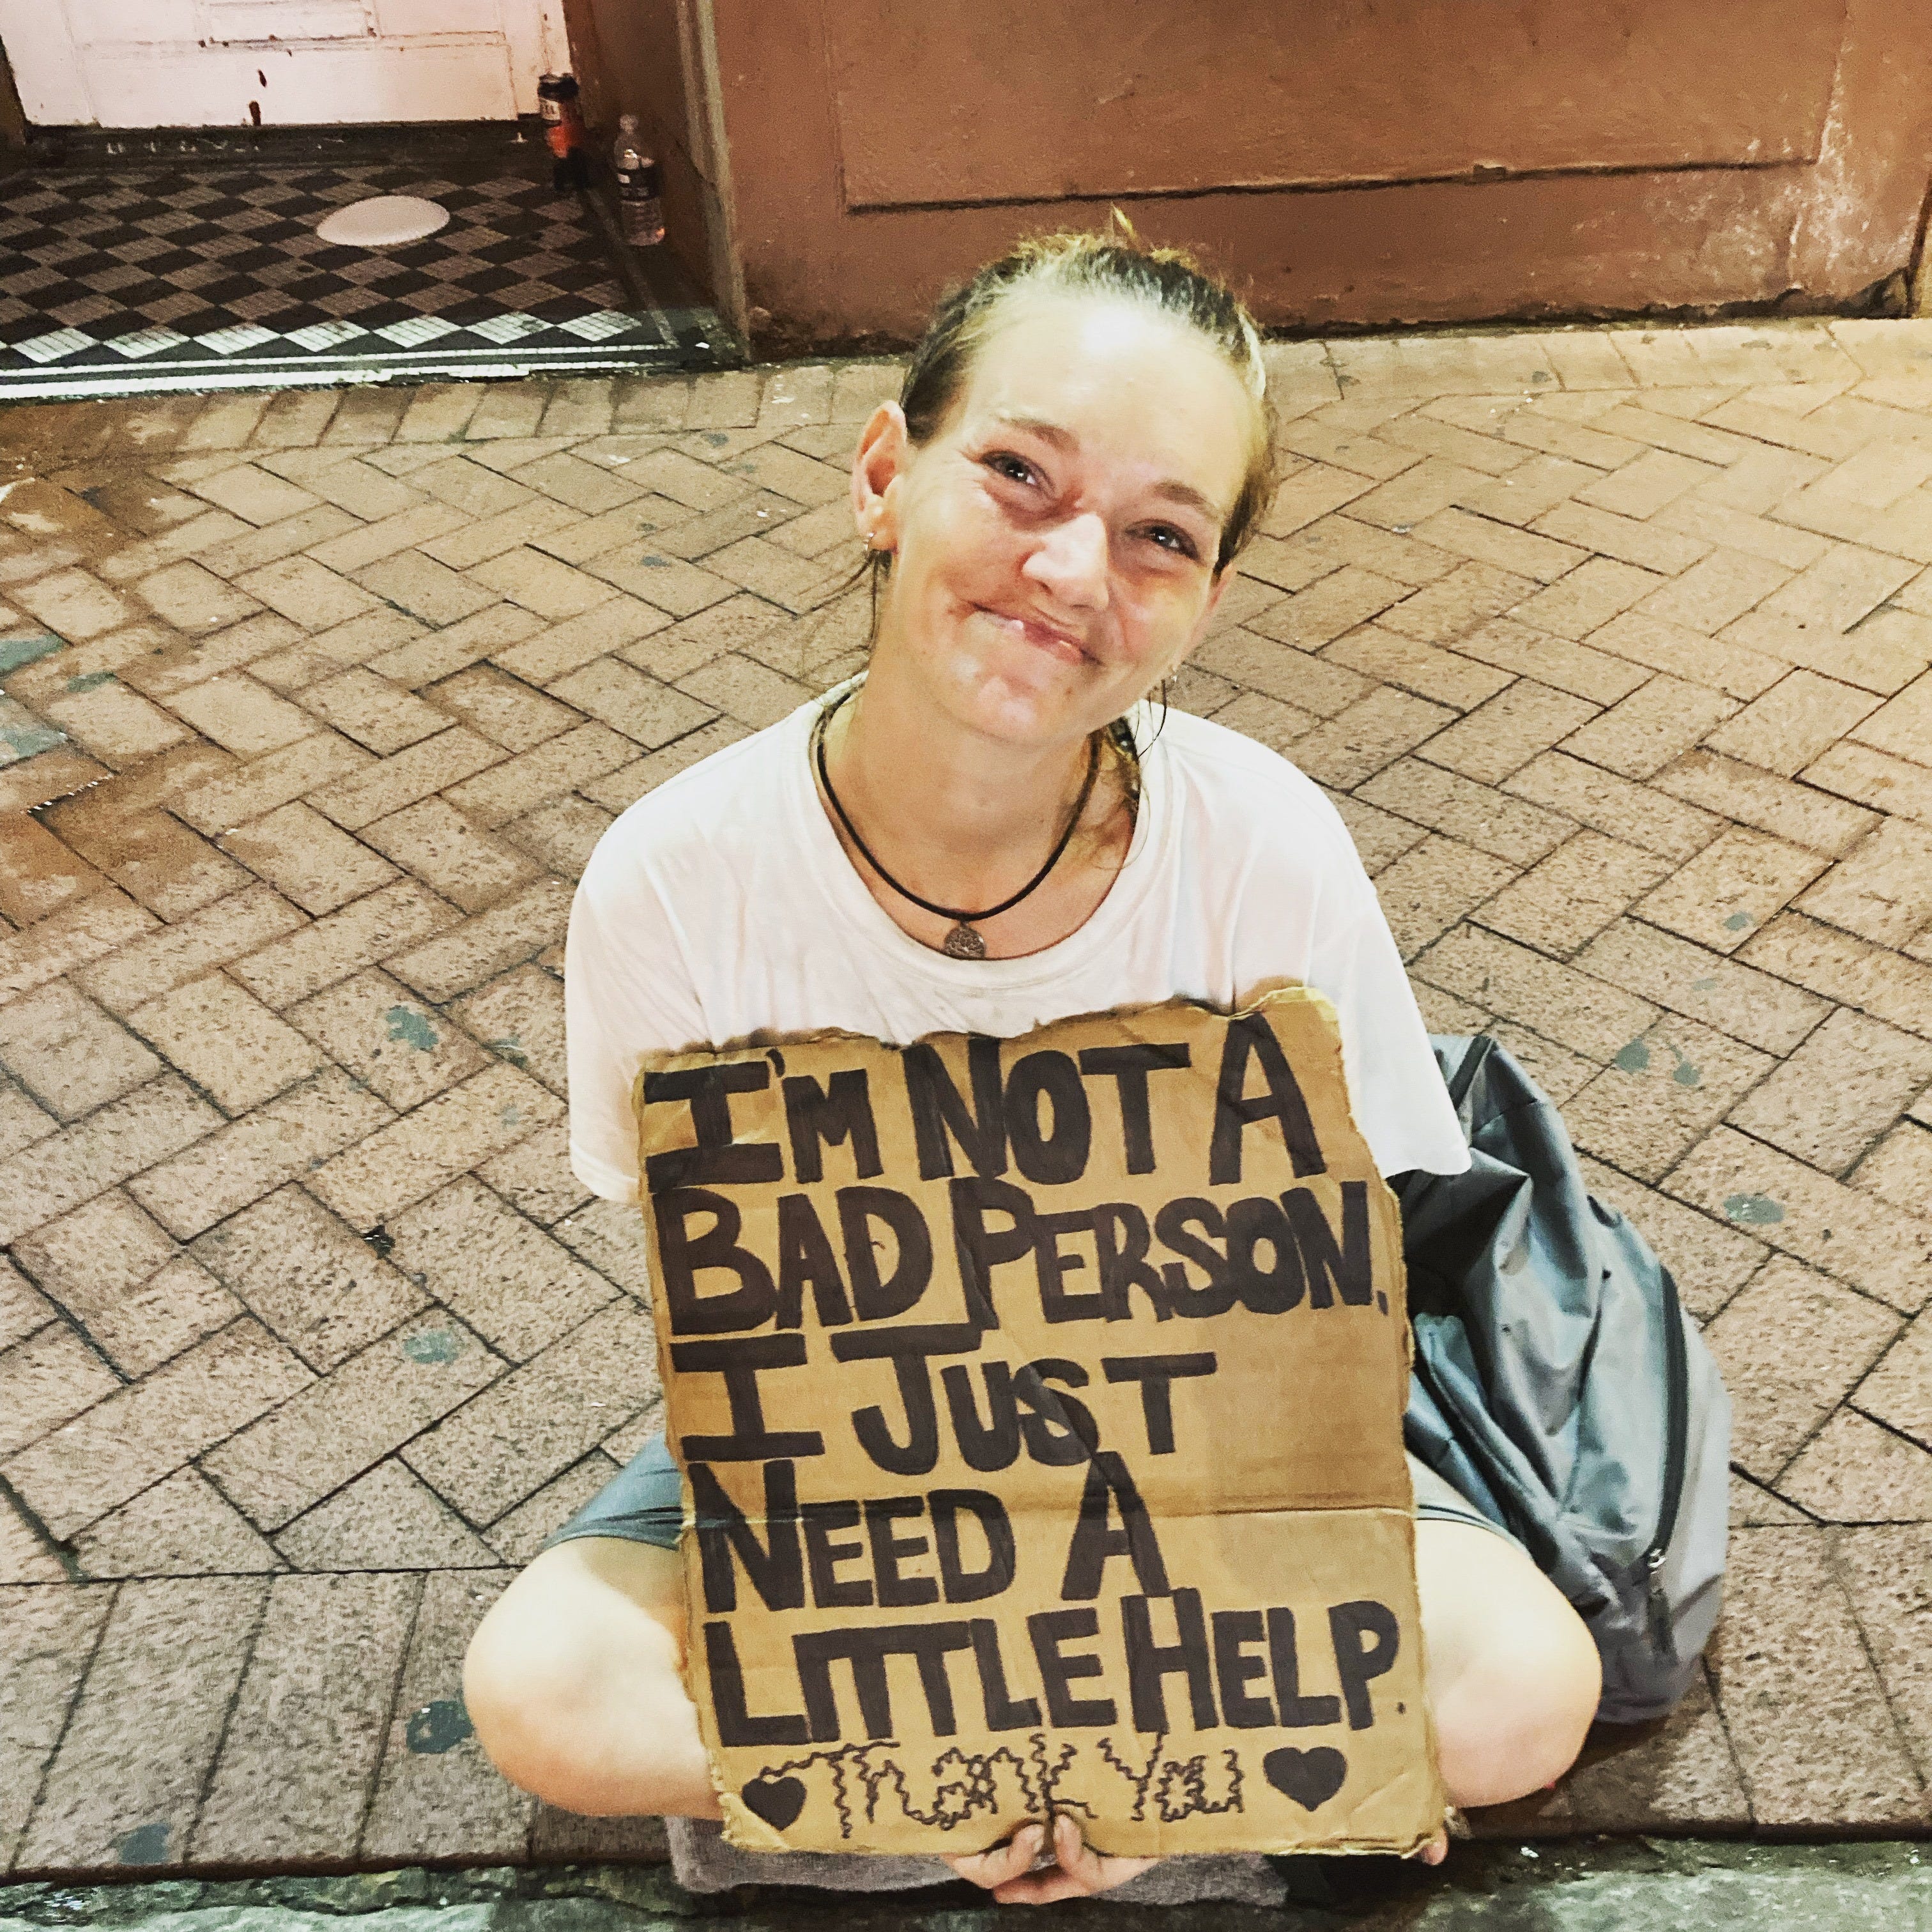 I'M NOT A
BAD PERSON.
I JUST
NEED A
LITTLE HELP.
Thank You